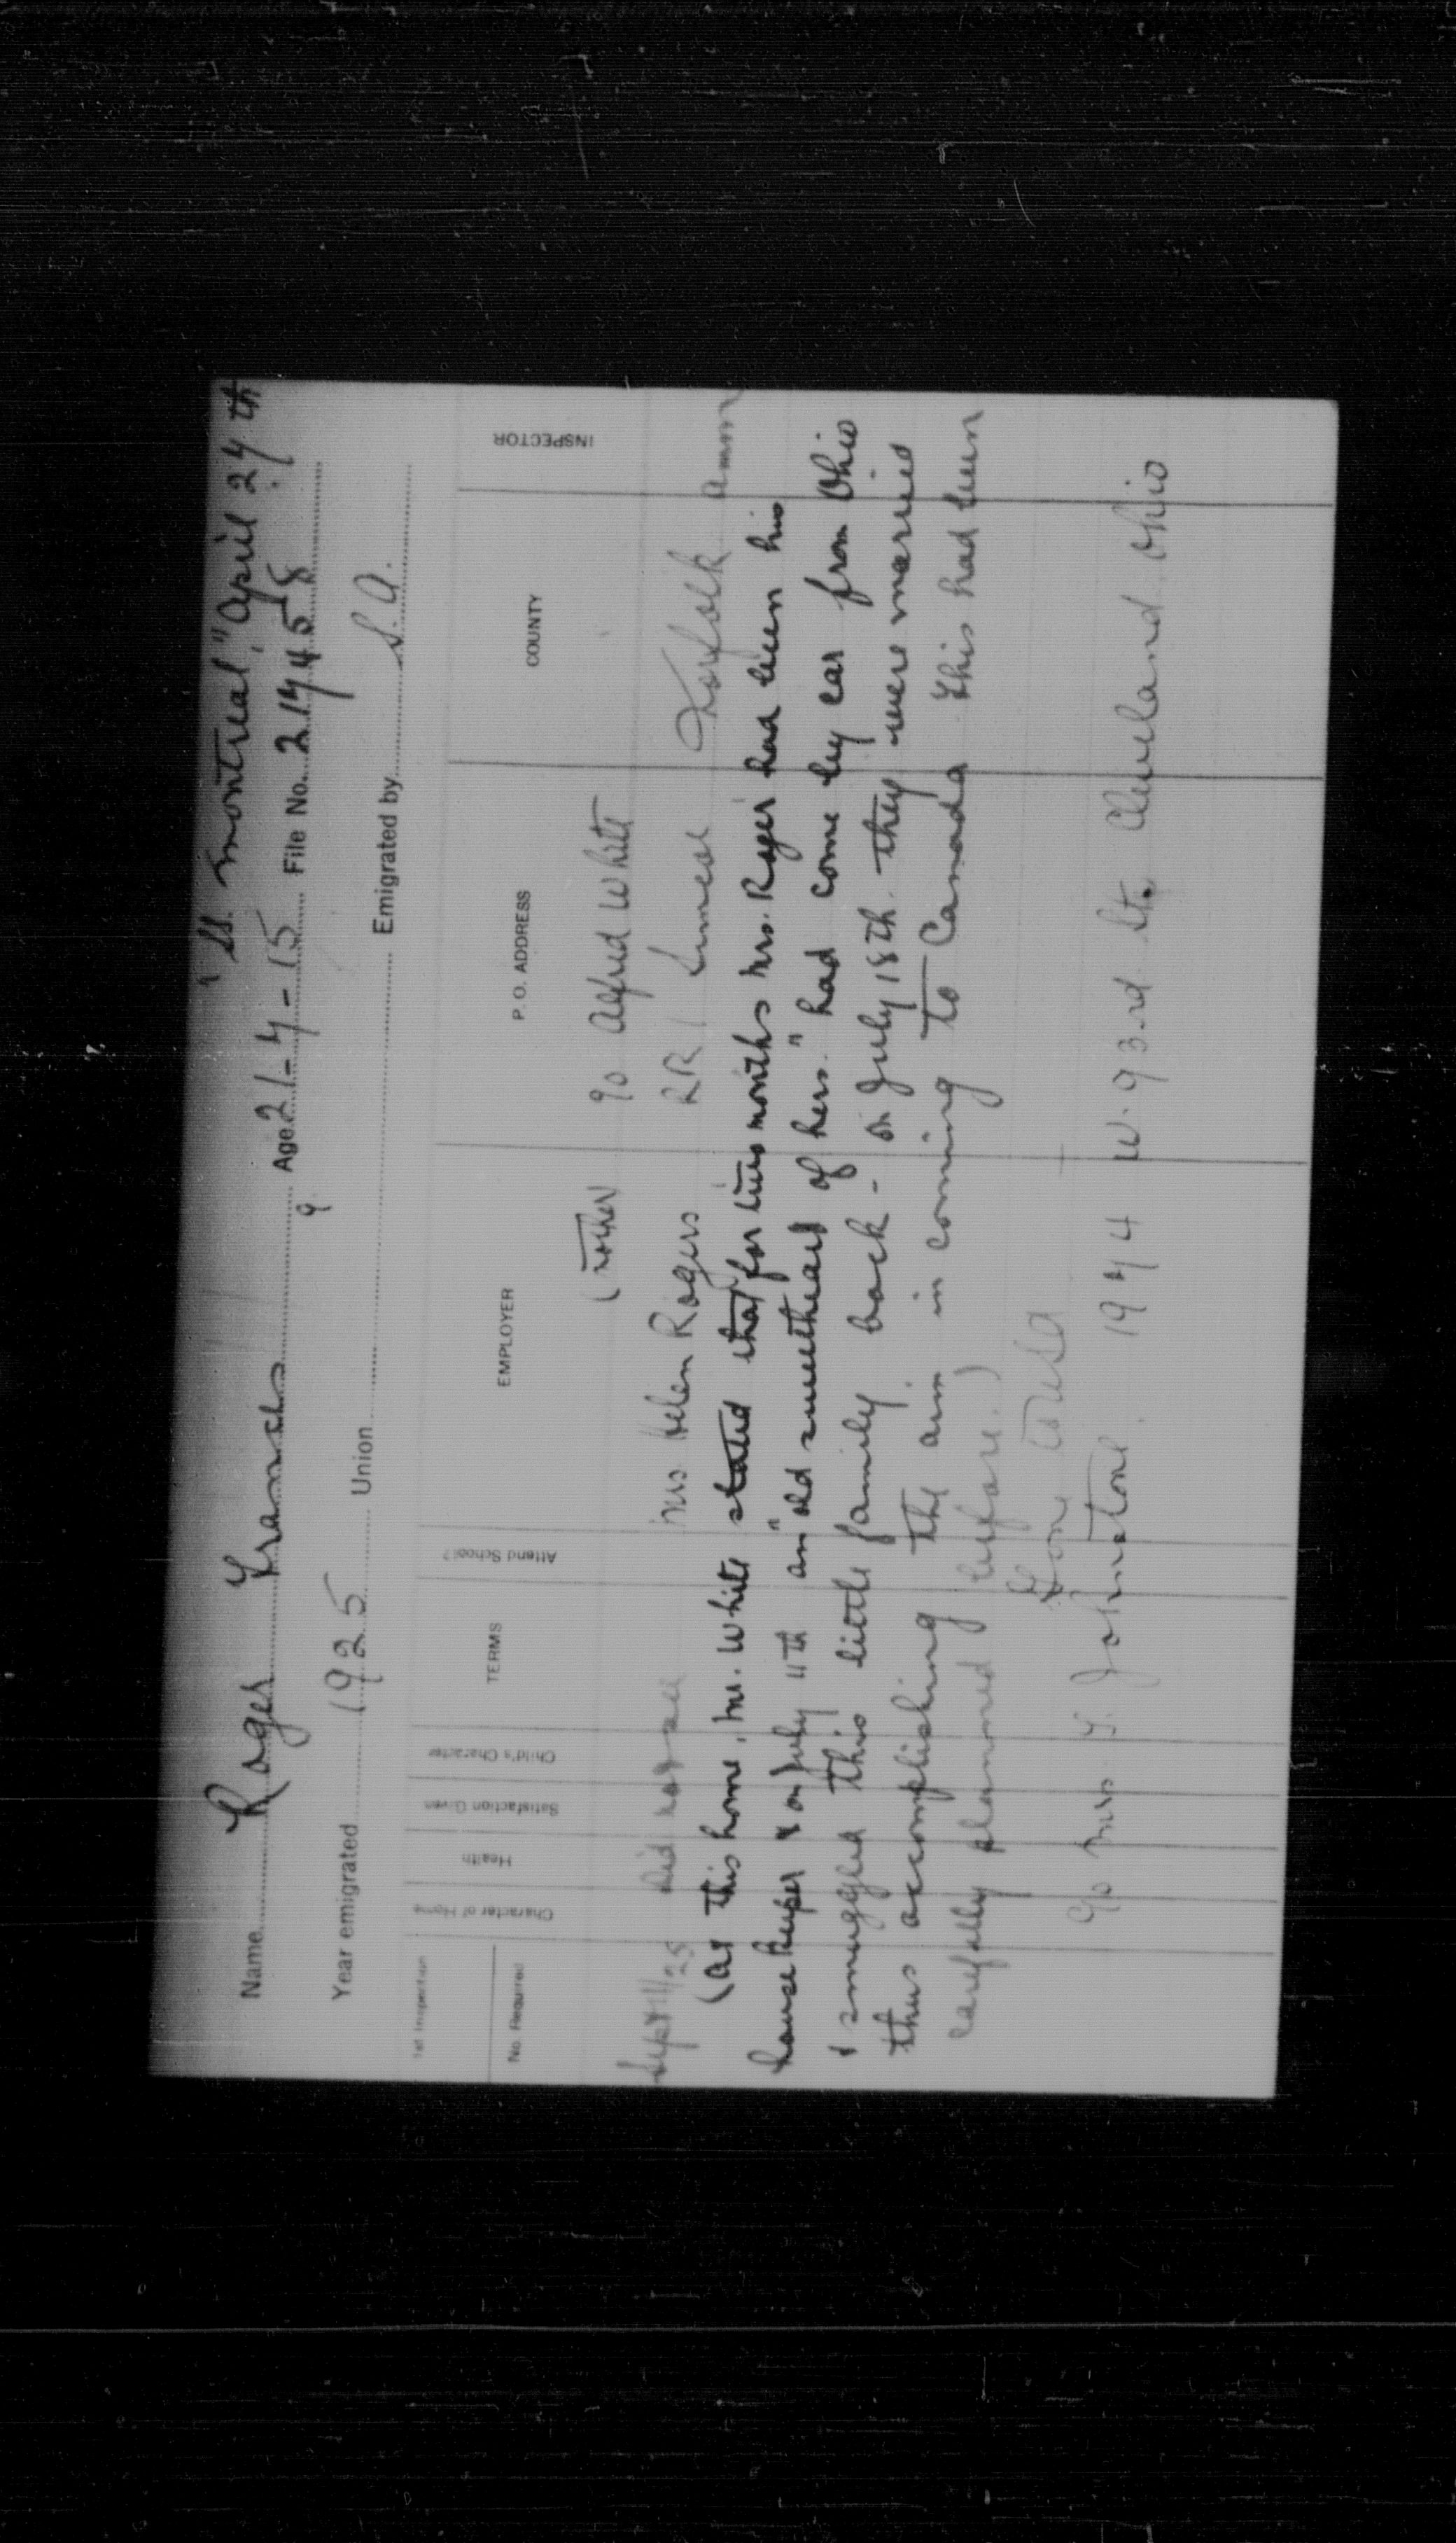 "SS. Montreal," April 27th
Name Roger Frances Age 21-7-15 File No. 217458
9
Year emigrated 1925 Union Emigrated by S.A.
1st Inspection
No. Required
Character of Home
Health
Satisfaction Given
Child's Character
TERMS
Attend School?
EMPLOYER
P. O. ADDRESS
COUNTY
INSPECTOR
(mother c/o Alfred White
Sept 11/25 Did not see Mrs. Helen Rogers RR 1 Simcoe Norfolk
(At this home, Mr. White stated that for two months Mrs. Roger had been his
housekeeper & on July 11th an "old sweetheart of hers" had come by car from Ohio
& smuggled this little family back - on July 18th they were married
thus accomplishing the aim in coming to Canada This had been
carefully planned before.)
Gone to USA
c/o Mrs. F. Johnstone 1974 W. 93rd St. Cleveland Ohio